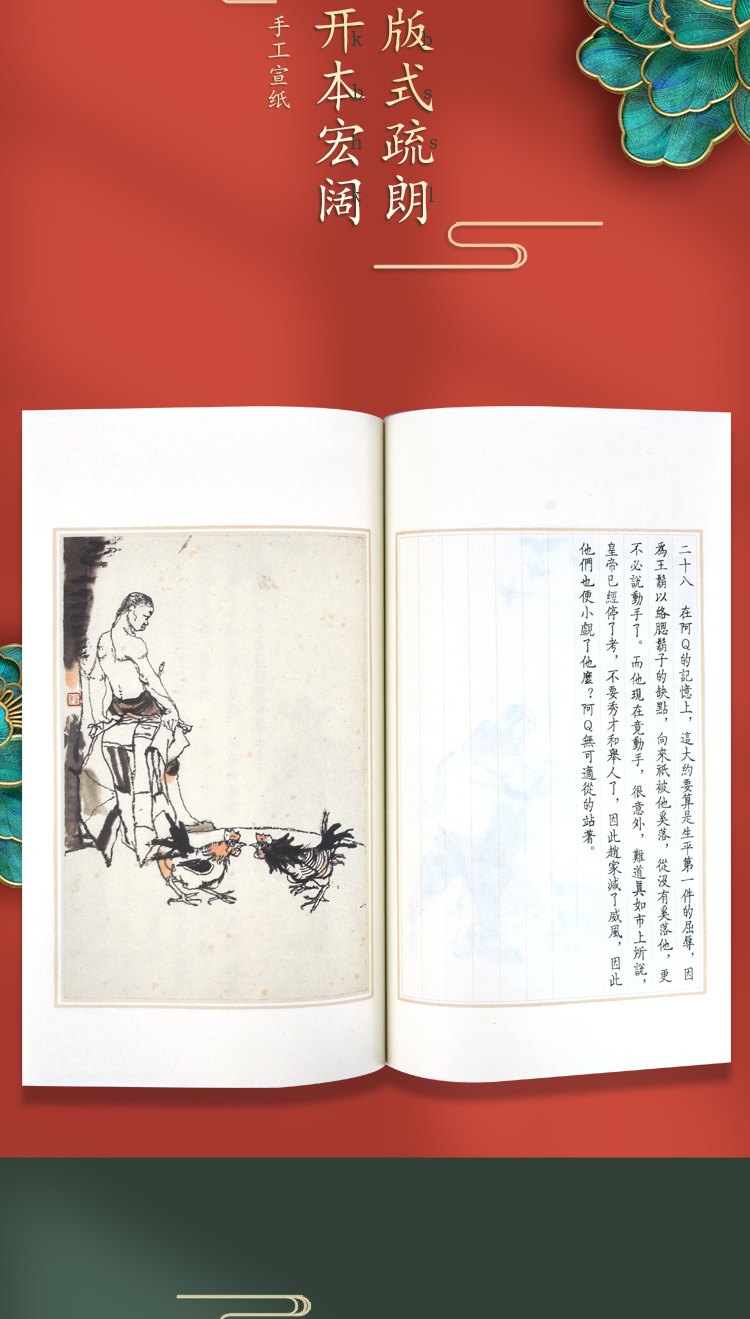 版式疏朗
开本宏阔
手工宣纸
b
s
s
l
k
b
h
k
二十八　在阿Q的記憶上，這大約要算是生平第一件的屈辱，因
爲王鬍以絡腮鬍子的缺點，向來祇被他奚落，從沒有奚落他，更
不必說動手了。而他現在竟動手，很意外，難道真如市上所說，
皇帝已經停了考，不要秀才和舉人了，因此趙家減了威風，因此
他們也便小覷了他麼？阿Q無可適從的站著。